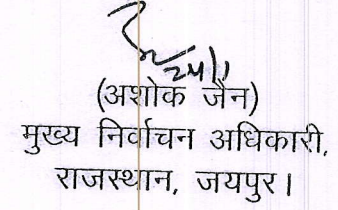 24/1
(अशोक जैन)
मुख्य निर्वाचन अधिकारी,
राजस्थान, जयपुर।